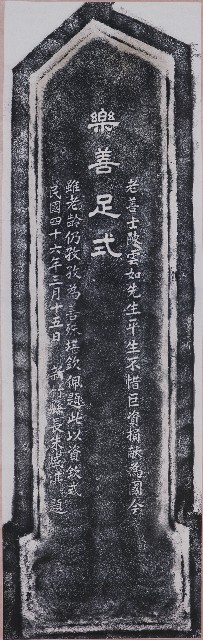 樂善足式
老善士陳雲如先生平生不惜巨資捐獻為國今
雖老於仍孜孜為善殊堪欽佩題此以資欽式
民國四十六年三月十五日
縣長朱 題